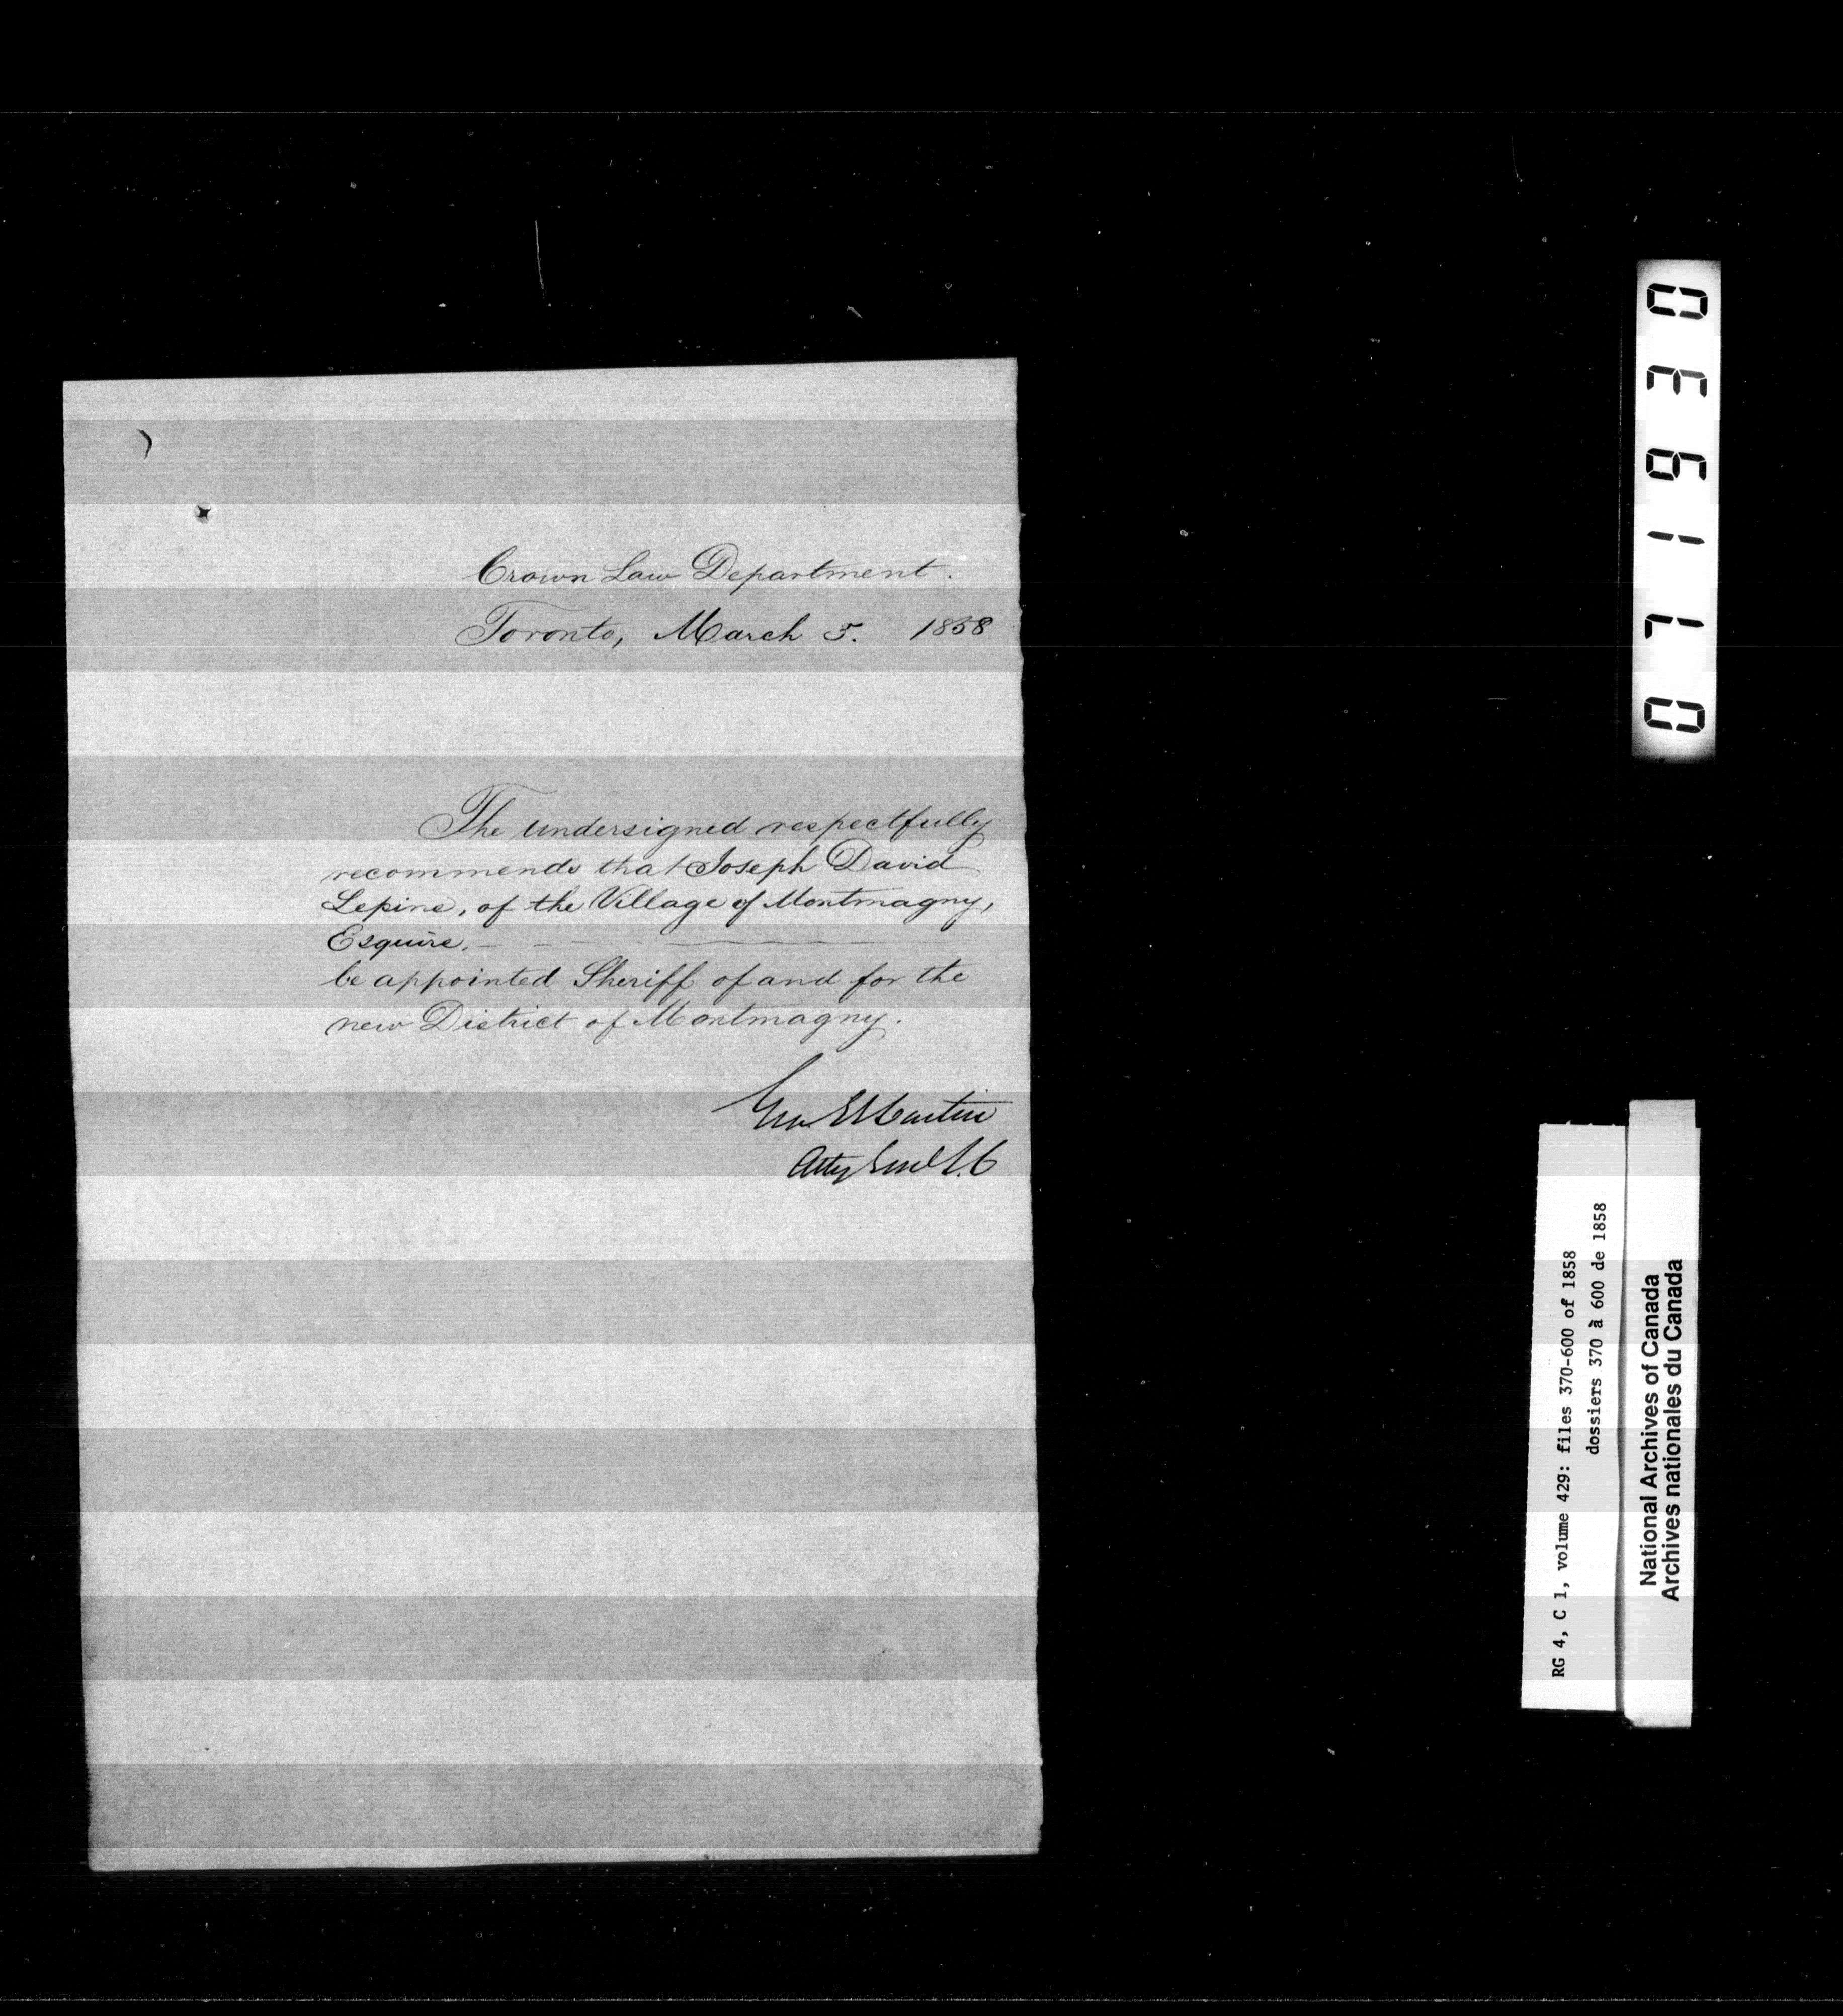 Crown Law Department.
Toronto, March 5. 1858
The undersigned respectfully
recommends that Joseph David
Lepine, of the Village of Montmagny,
Esquire,
be appointed Sheriff of and for the
new District of Montmagny.
Geo E Cartier
Atty Genl L.C
071930
RG 4, C 1, volume 429: files 370-600 of 1858
dossiers 370 à 600 de 1858
National Archives of Canada
Archives nationales du Canada